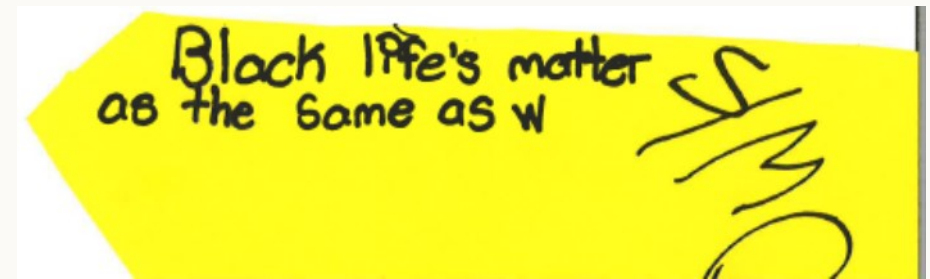 Black life's matter
as the same as w